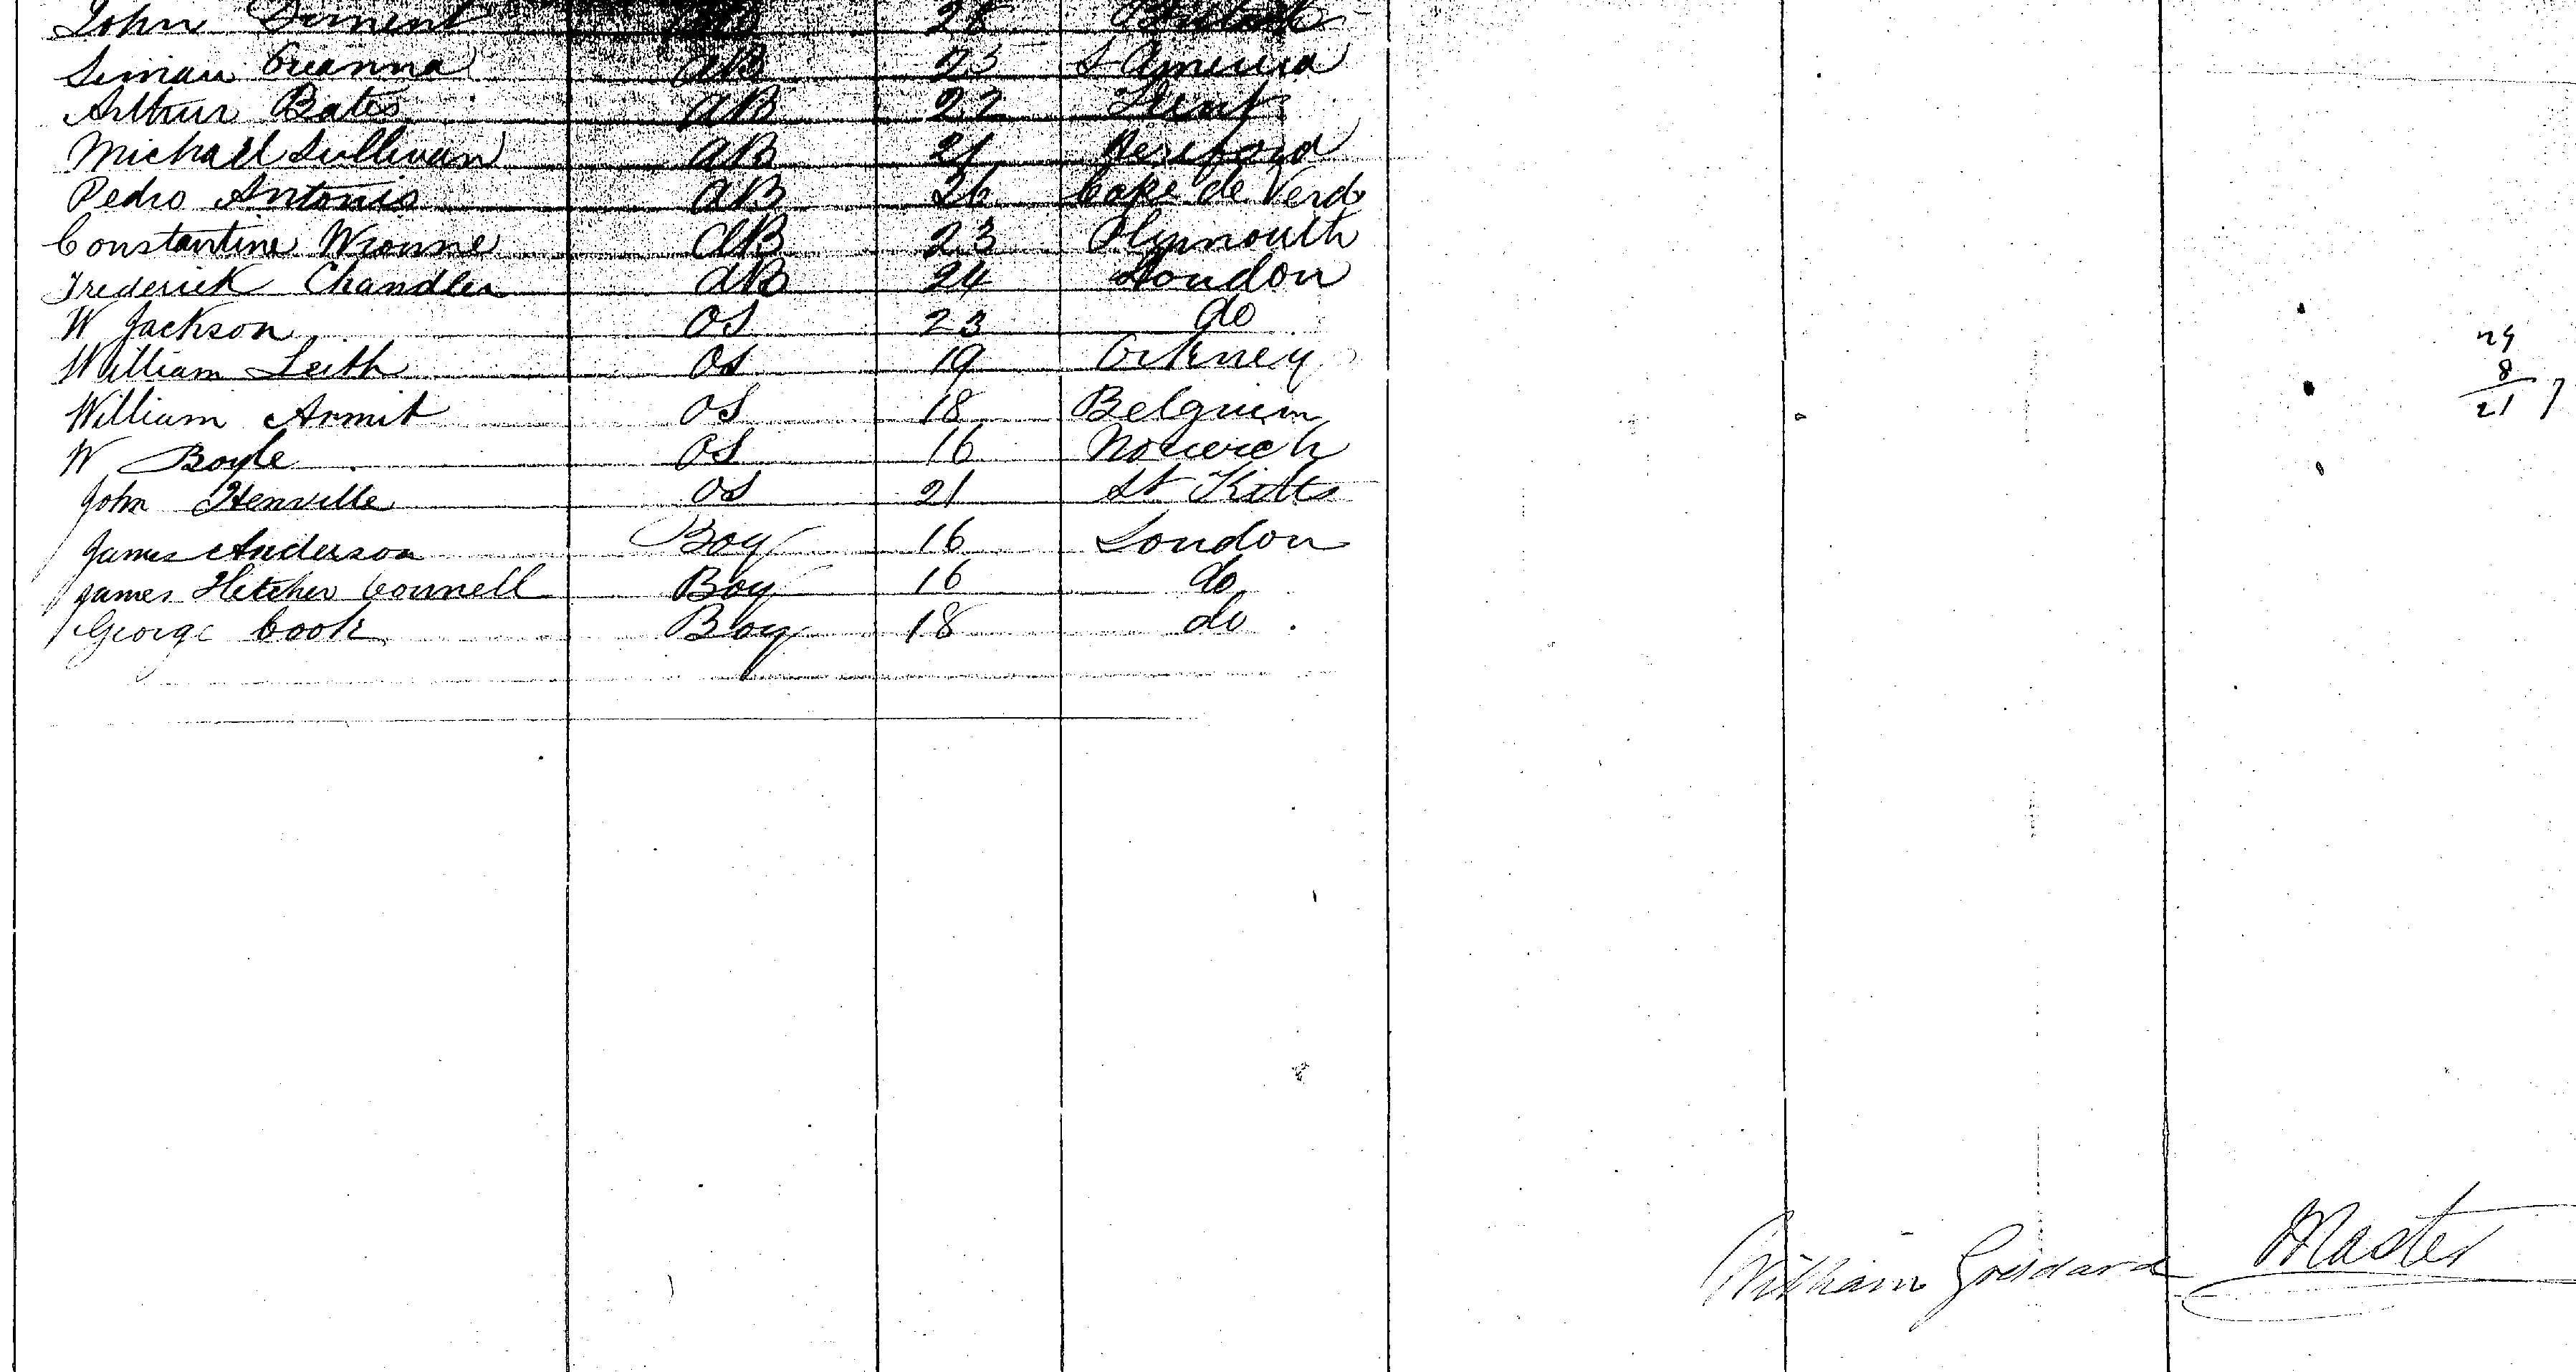 John 28
AB 23 S America
Arthur Bates AB 22 Flint
Michael Sullivan AB 21 Hereford
Pedro Antonio AB 26 Cape de Verd
Constantine AB 23 Plymouth
Frederick Chandler AB 24 London
W Jackson OS 23 do
William Leith OS 19 Orkney
William Armit OS 18 Belguim
W Boyle OS 16 Norwich
John Henville OS 21 St Kitts
James Anderson Boy 16 London
James Connell Boy 16 do
George Cook Boy 18 do
29
8
21
William Goddard Master